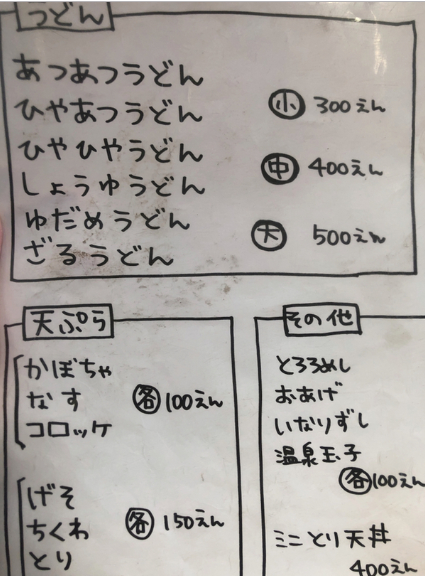 うどん
あつあつうどん
ひやあつうどん
ひやひやうどん
しょうゆうどん
ゆだめうどん
ざるうどん
小 300えん
中 400えん
大 500えん
天ぷら
かぼちゃ
なす
コロッケ
各 100えん
げそ
ちくわ
とり
各 150えん
その他
とろろめし
おあげ
いなりずし
温泉玉子
各 100えん
ミニとり天丼
400えん